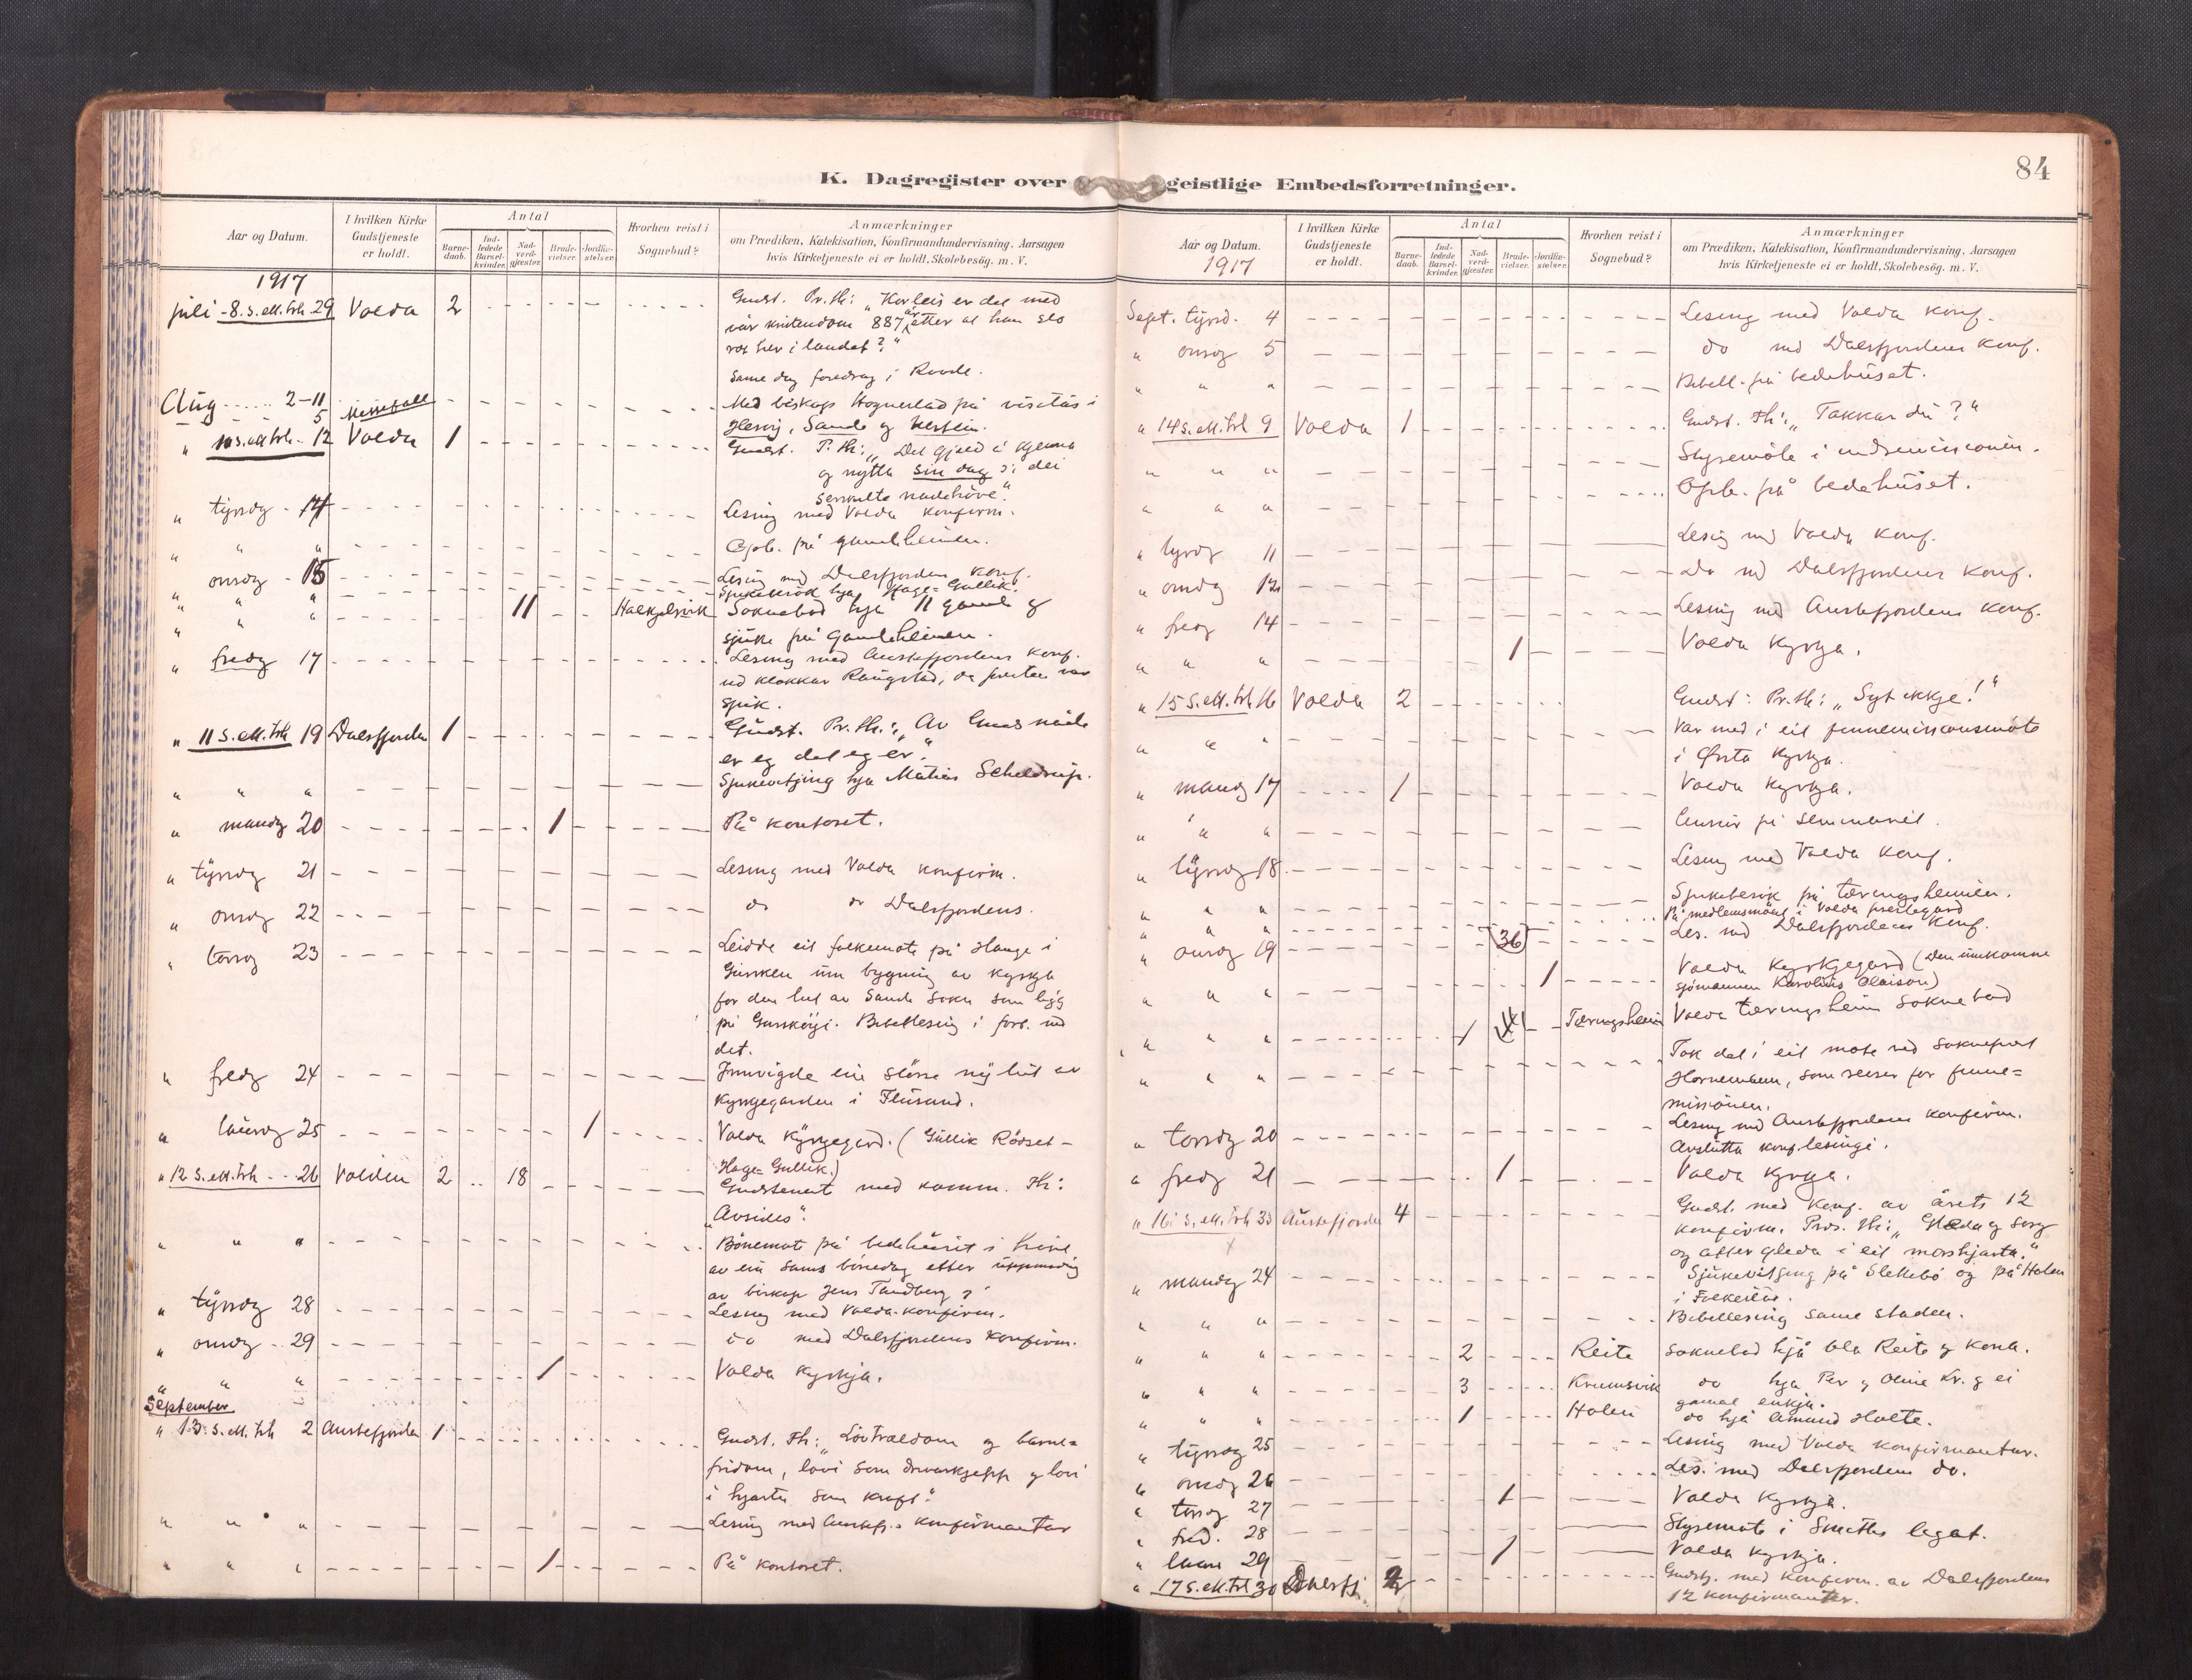 K. Dagregister over geistlige Embedsforretninger.
84
Aar og Datum.
I hvilken Kirke
Gudstjeneste
er holdt.
Antal
Barne-
daab.
Ind-
ledede
Barsel-
kvinder.
Nad-
verd-
gjæster.
Brude-
vielser.
Jordfæ-
stelser.
Hvorhen reist i
Sognebud?
Anmærkninger
om Prædiken, Katekisation, Konfirmandundervisning, Aarsagen
hvis Kirketjeneste ei er holdt, Skolebesög. m. V.
1917
juli - 8. s. ett. trh. 29 Volda 2 Gudst. Pr. th: "Korleis er det med
vår kristendom 887 år etter at han slo
rot her i landet?"
Same dag foredrag i Rovde.
Aug 2-11 Med biskop Hognestad på visitas i
5 Messefall
Herøy, Sande og
" 10 s. ett. trh. 12 Volda 1 Gudst. P. th: "Det gjeld å kjenna
og nytta sin dag i dei
serskilte nådehøve."
" tysdg 14 Lesing med Volda konfirm.
" " " Opb. på gamleheimen.
" onsdg 15 Lesing med Dalsfjorden konf.
" " " Sjukebesök hja Hage-Gullik.
" " " 11 Haekjelsvik Soknebod hja 11 gamle og
sjuke på gamleheimen.
" fredg 17 Lesing med Austefjordens konf.
ved klokkar Raugstad, da presten var
sjuk.
" 11 s. ett. trh 19 Dalsfjorden 1 Gudst. Pr. th: "Av Guds nåde
er eg det eg er."
" " " Sjukevitjing hja Matias Scheldrup.
" mandg 20 1 På kontoret.
" tysdg 21 Lesing med Volda konfirm.
" onsdg 22 do do Dalsfjordens.
" torsdg 23 Leidde eit folkemöte på Hauge i
Gursken um bygning av kyrkja
for den lut av Sande sokn som ligg
på Gurskøyi. Bibellesing i forb. med
det.
" fredg 24 Innvigde ein större ny lut av
kyrkjegarden i Fiksund.
" laurdg 25 1 Volda Kyrkjegard. (Gullik Rödset -
Hage-Gullik.)
" 12 s. ett. trh 26 Volden 2 18 Gudstenest med komm. Th:
"Avsides".
" " " Bönemöte på bedehuset i
av ein sams bönedag etter uppmoding
av biskop Jens Tandberg
" tysdg 28 Lesing med Volda-konfirm.
" onsdg 29 do med Dalsfjordens konfirm.
" " " 1 Volda Kyrkja.
September
" 13. s. ett. trh 2 Austefjorden 1 Gudst. Th: "Lovtrældom og barne-
fridom, lovi som drivarkjepp og lovi
i hjarta som kraft."
" " " Lesing med Austefj.s konfirmantar
" " " 1 På kontoret.
Aar og Datum.
1917
I hvilken Kirke
Gudstjeneste
er holdt.
Antal
Barne-
daab.
Ind-
ledede
Barsel-
kvinder.
Nad-
verd-
gjæster.
Brude-
vielser.
Jordfæ-
stelser.
Hvorhen reist i
Sognebud?
Anmærkninger
om Prædiken, Katekisation, Konfirmandundervisning, Aarsagen
hvis Kirketjeneste ei er holdt, Skolebesög. m. V.
Sept. tysd. 4 Lesing med Volda konf.
" onsdg 5 do med Dalsfjordens konf.
" " " Bibell. på bedehuset.
" 14 s. ett. trh 9 Volda 1 Gudst. Th: "Takkar du?"
" " " Styremöte i indremisjonen.
" " " Opb. på bedehuset.
" tysdg 11 Lesing med Volda konf.
" onsdg 12 Do med Dalsfjordens konf.
" fredg 14 Lesing med Austefjordens konf.
" " " 1 Volda Kyrkja.
" 15 s. ett. trh 16 Volda 2 Gudst: Pr. th: "Syt ikkje!"
" " " Var med i eit finnemisjonsmöte
i Ørsta Kyrkja.
" mandg 17 1 Volda kyrkja.
" " " på seminariet.
" tysdg 18 Lesing med Volda konf.
" " " Sjukebesök på tæringsheimen.
" " " På medlemsmöte i Volda prestegard
" onsdg 19 36 Les. med Dalsfjordens konf.
" " " 1 Volda kyrkjegard (Den umkomne
sjömannen Karolius Olaison)
" " " Tæringsheim Volda tæringsheim Soknebod
" " " Tok del i eit möte ved sokneprest
Hornemann, som reiser for finne-
misjonen.
" torsdg 20 Lesing med Austefjordens konfirm.
Avslutta konf.lesingi.
" fredg 21 1 Volda kyrkja.
" 16 s. ett. trh 23 Austefjorden 4 Gudst. med konf. av årets 12
konfirm. Pros. th: "Gleda og sorg
og atter gleda i eit morshjarta."
" mandg 24 Sjukevitjing på Slettebö og på Holen
i Folkestad.
" " " Bibellesing same staden.
" " " 2 Reite Soknebod hjå Ola Reite og kona.
" " " 3 Krumsvik do hja Per og Oline Kr. og ei
gamal enkja.
" " " 1 Holen do hjå Amund Holte.
" tysdg 25 Lesing med Volda konfirmantar.
" onsdg 26 Les. med Dalsfjordens do.
" torsdg 27 1 Volda Kyrkja.
" fred. 28 Styremöte i Smiths legat.
" laur 29 1 Volda kyrkja.
" 17 s. ett. trh 30 Dalsfj. 2 Gudstj. med konfirm. av Dalsfjordens
12 konfirmanter.